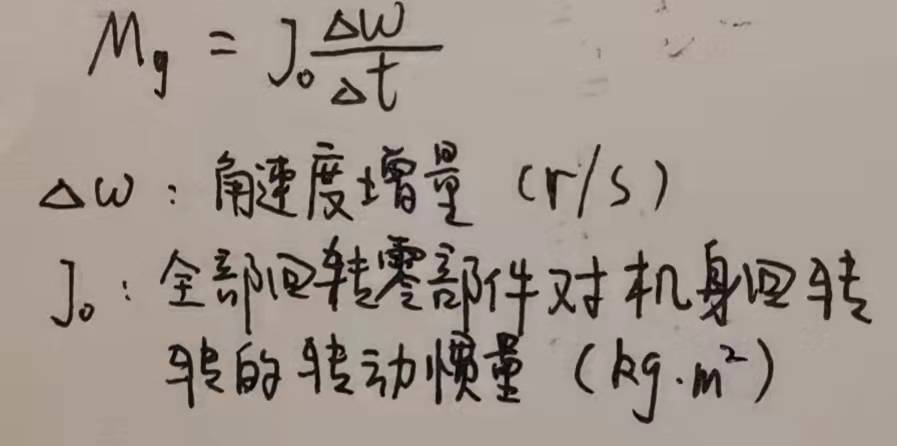 Mg = J₀ Δω/Δt
Δω：角速度增量（r/s）
J₀：全部回转零部件对机身回转
转的转动惯量（kg·m²）